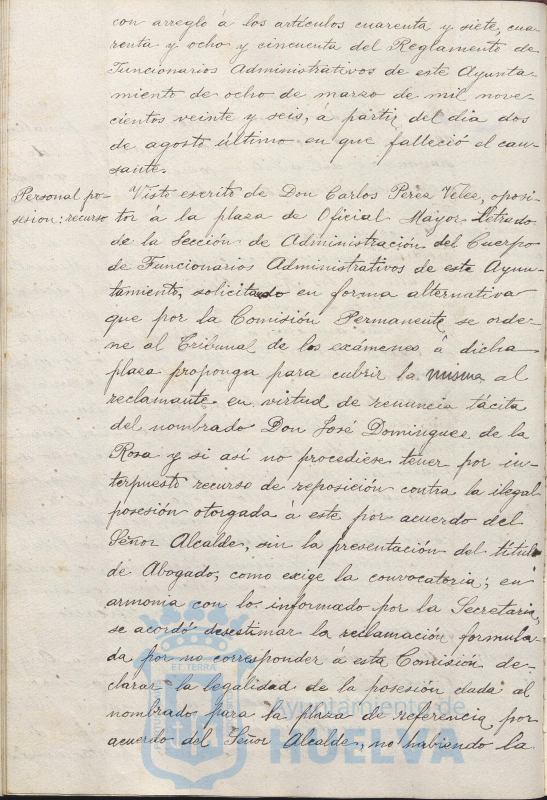 con arreglo á los artículos cuarenta y siete, cua-
renta y ocho y cincuenta del Reglamento de
Funcionarios Administrativos de este Ayunta-
miento de ocho de marzo de mil nove-
cientos veinte y seis, á partir del dia dos
de agosto último en que falleció el cau-
sante.
Personal po-
sesion: recurso
Visto escrito de Don Carlos Perez Velez, oposi-
tor á la plaza de Oficial Mayor Letrado
de la Sección de Administración del Cuerpo
de Funcionarios Administrativos de este Ayun-
tamiento, solicitando en forma alternativa
que por la Comisión Permanente se orde-
ne al Tribunal de los exámenes á dicha
plaza proponga para cubrir la misma al
reclamante en virtud de renuncia tácita
del nombrado Don José Dominguez de la
Rosa y si así no procediese tener por in-
terpuesto recurso de reposición contra la ilegal
posesión otorgada á este por acuerdo del
Señor Alcalde, sin la presentación del título
de Abogado, como exige la convocatoria; en
armonia con lo informado por la Secretaria,
se acordó desestimar la reclamación formula-
da por no corresponder á esta Comisión de-
clarar la legalidad de la posesión dada al
nombrado para la plaza de referencia por
acuerdo del Señor Alcalde, no habiendo la
ET TERRA
Ayuntamiento de
HUELVA